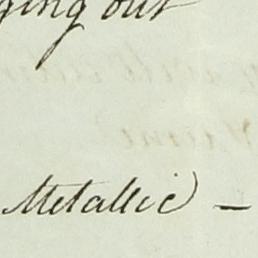 ging out
Metallic —